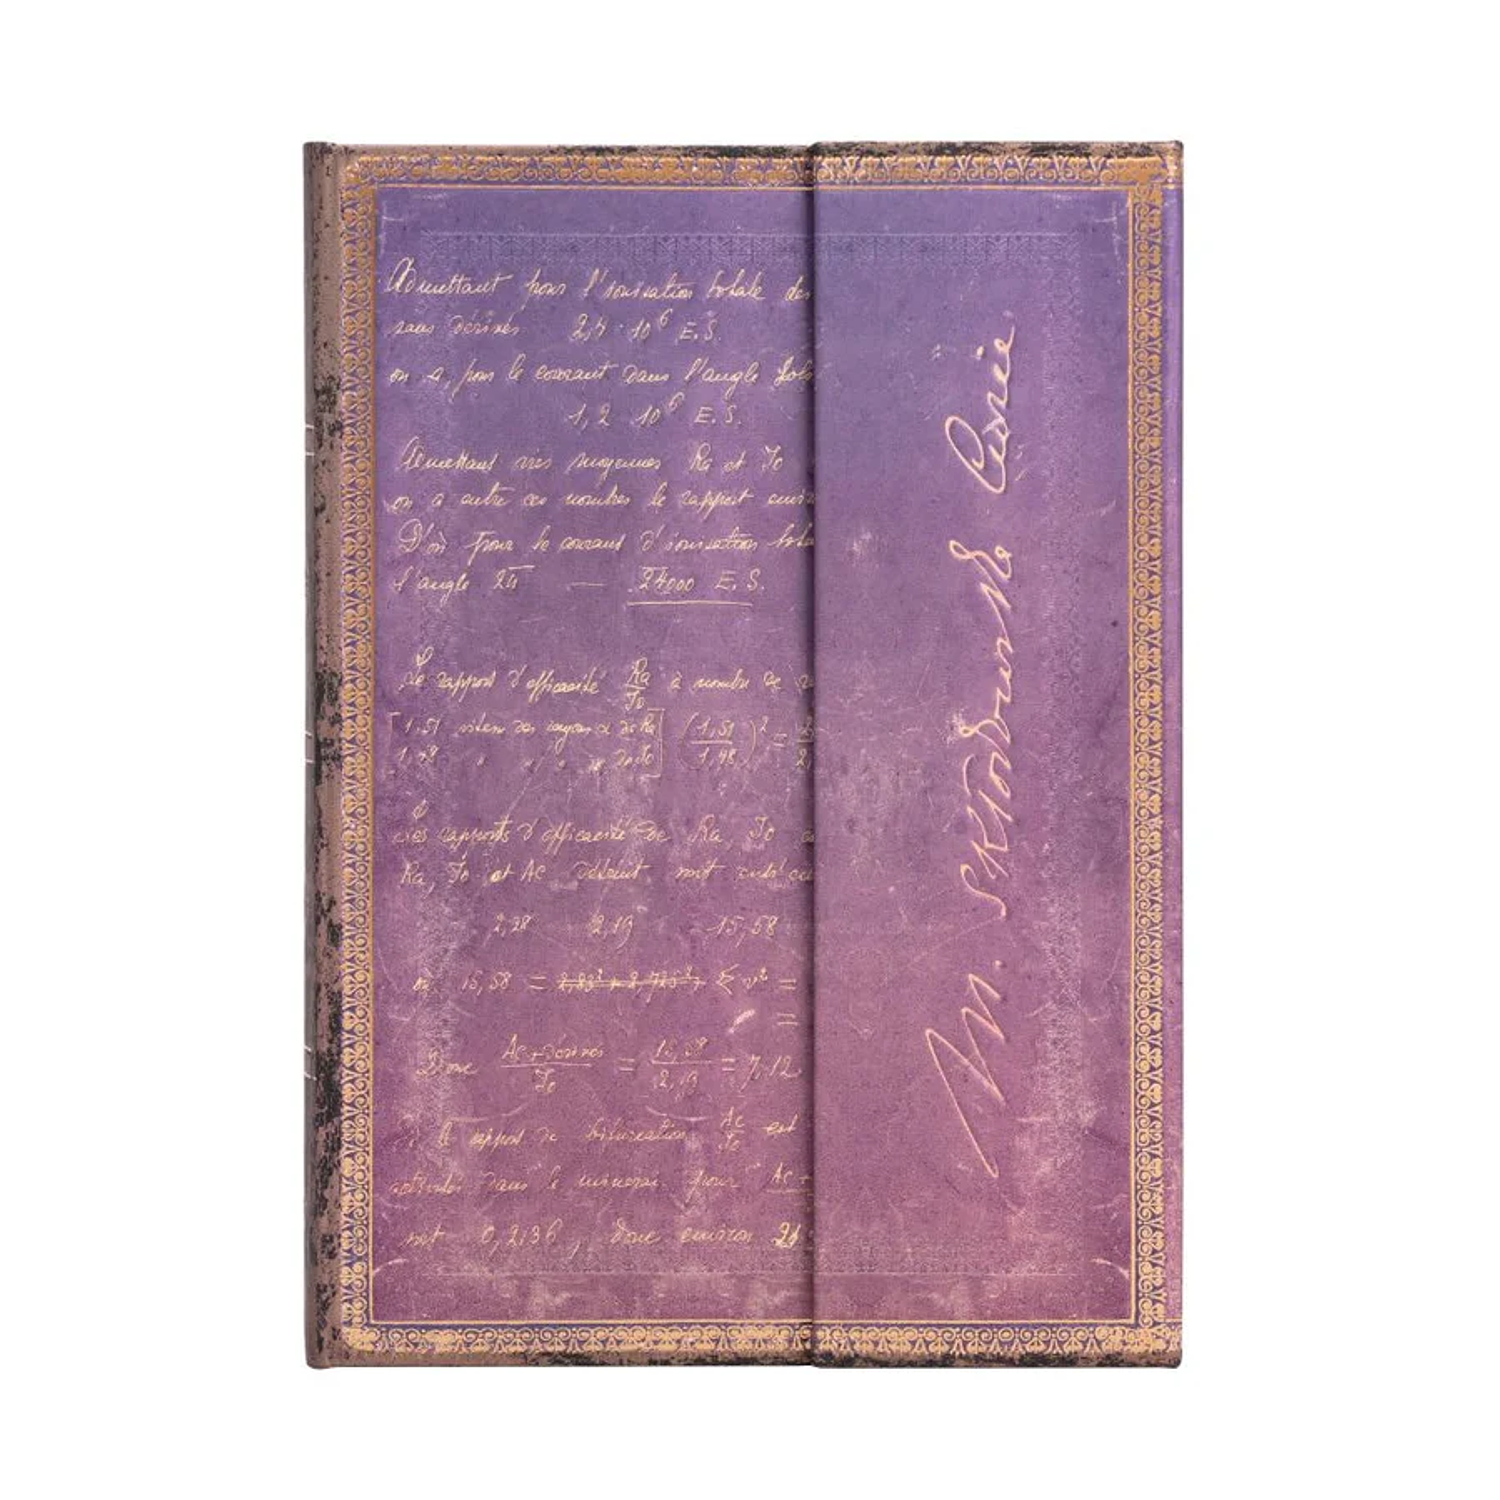 Admettant pour l'ionisation totale des
sans dérivés 2,4 · 10⁶ E.S.
on a, pour le courant dans l'angle
1,2 10⁶ E.S.
Admettant Ra et Io
on a entre ces nombres le rapport
D'où pour le courant d'ionisation
l'angle 2π — 24000 E.S.
Le rapport d'efficacité Ra/Io à nombre de
[1,51 des rayons α de Ra] (1,51/1,48)² =
1,48 " " " " de Io]
Les rapports d'efficacité de Ra, Io
Ra, Io et Ac
2,28 2,19 15,58
15,58 = Σ v² =
=
Donc Ac + dérivés/Io = 15,58/2,19 = 7,12
le rapport de bifurcation Ac/Io est
activités dans le minerai pour Ac +
soit 0,2136, donc environ 21
M. Skłodowska Curie